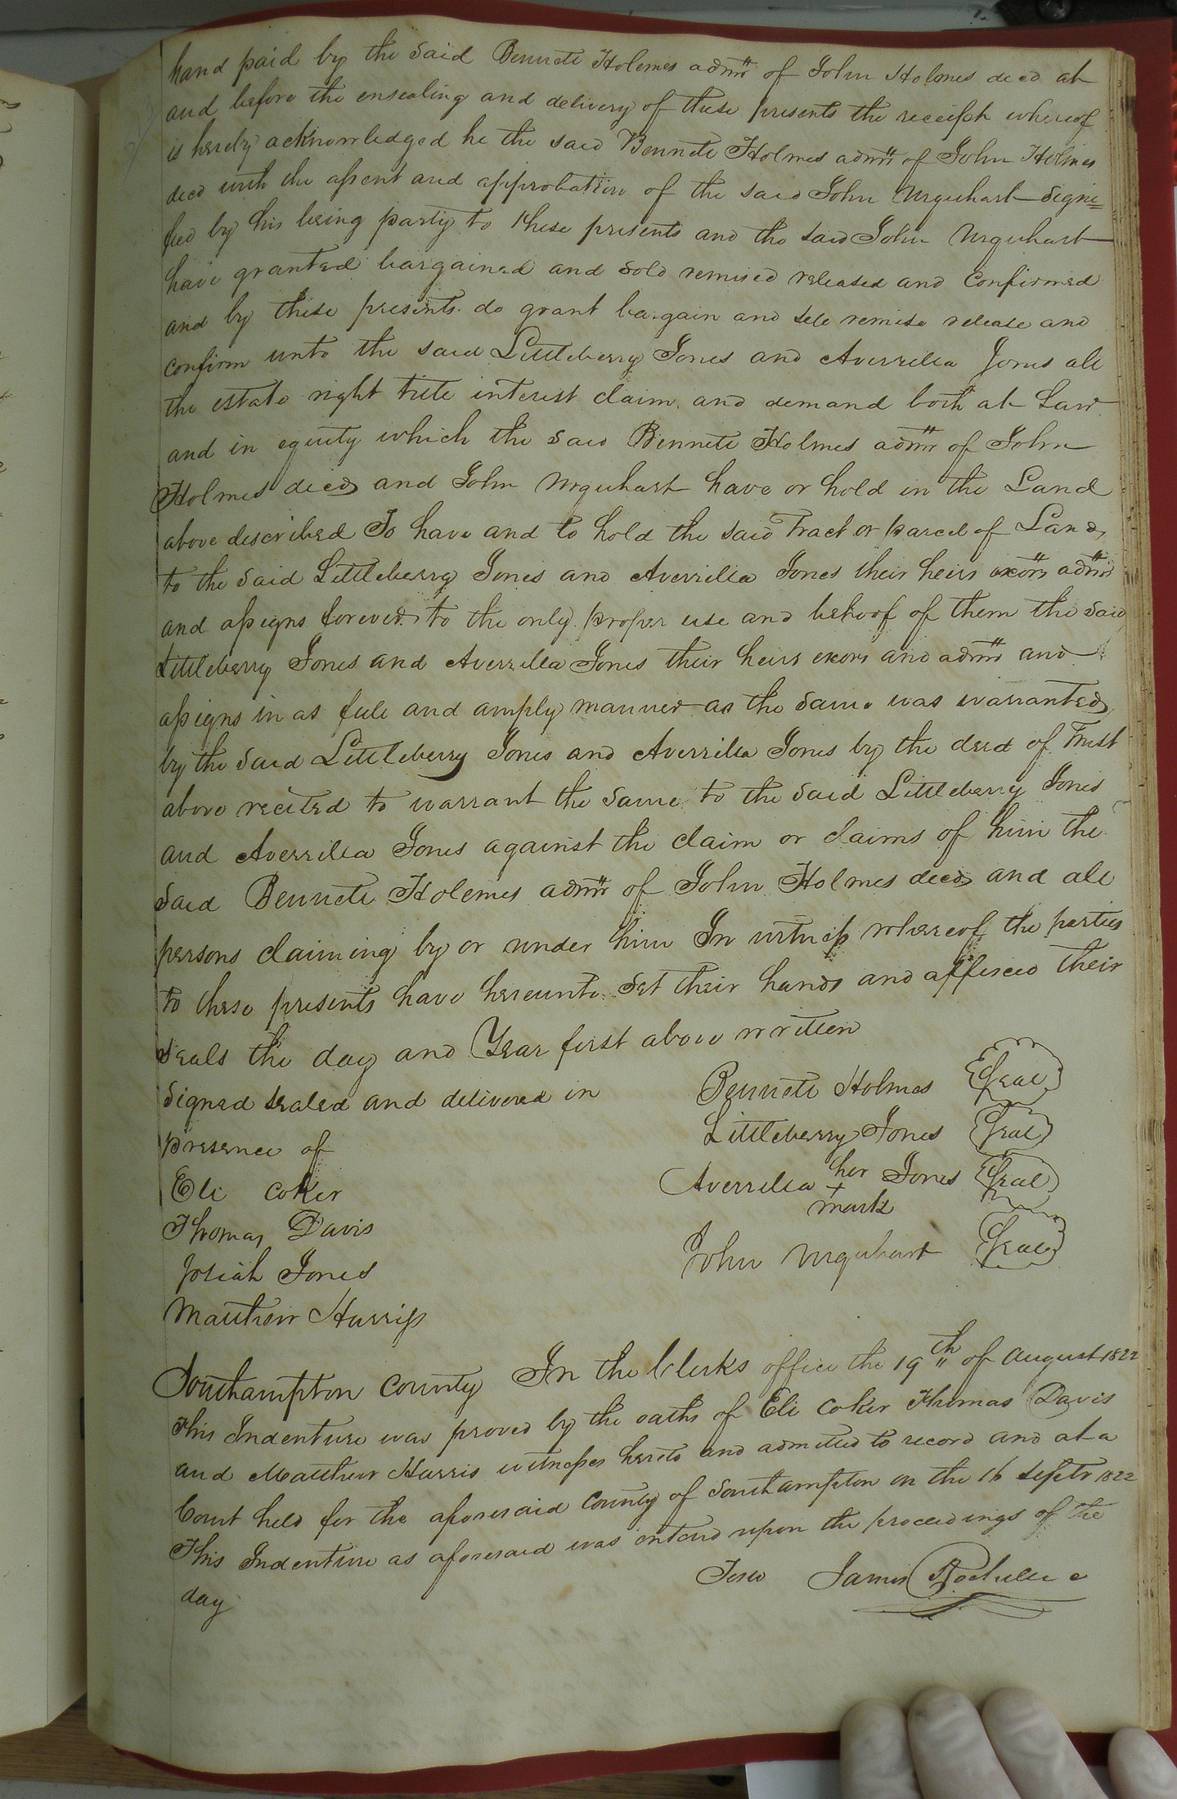 hand paid by the said Bennett Holemes admr of John Holmes decd at
and before the ensealing and delivery of these presents the receipt whereof
is hereby acknowledged he the said Bennett Holmes admr of John Holmes
decd with the assent and approbation of the said John Urquhart signi=
fied by his being party to these presents and the said John Urquhart
have granted bargained and sold remised released and confirmed
and by these presents do grant bargain and sell remise release and
confirm unto the said Littleberry Jones and Averrilla Jones all
the estate right title interest claim and demand both at Law
and in equity which the said Bennett Holmes admr of John
Holmes decd and John Urquhart have or hold in the Land
above described To have and to hold the said Tract or parcel of Land,
to the said Littleberry Jones and Averrilla Jones their heirs exors admrs
and assigns forever to the only proper use and behoof of them the said
Littleberry Jones and Averrilla Jones their heirs exors and admrs and
assigns in as full and amply manner as the same was warranted
by the said Littleberry Jones and Averrilla Jones by the deed of Trust
above recited to warrant the same to the said Littleberry Jones
and Averrilla Jones against the claim or claims of him the
said Bennett Holemes admr of John Holmes decd and all
persons claiming by or under him In witness whereof the parties
to these presents have hereunto set their hands and affixed their
seals the day and Year first above written
Signed sealed and delivered in
presence of
Eli Coker
Thomas Davis
Josiah Jones
Matthew Harriss
Bennett Holmes Seal
Littleberry Jones Seal
Averrilla her + mark Jones Seal
John Urquhart Seal
Southampton County In the Clerks office the 19th of August 1822
This Indenture was proved by the oaths of Eli Coker Thomas Davis
and Matthew Harris witnesses hereto and admitted to record and at a
Court held for the aforesaid County of Southampton on the 16 Septr 1822
This Indenture as aforesaid was entered upon the proceedings of the
day
Teste James Rochelle c